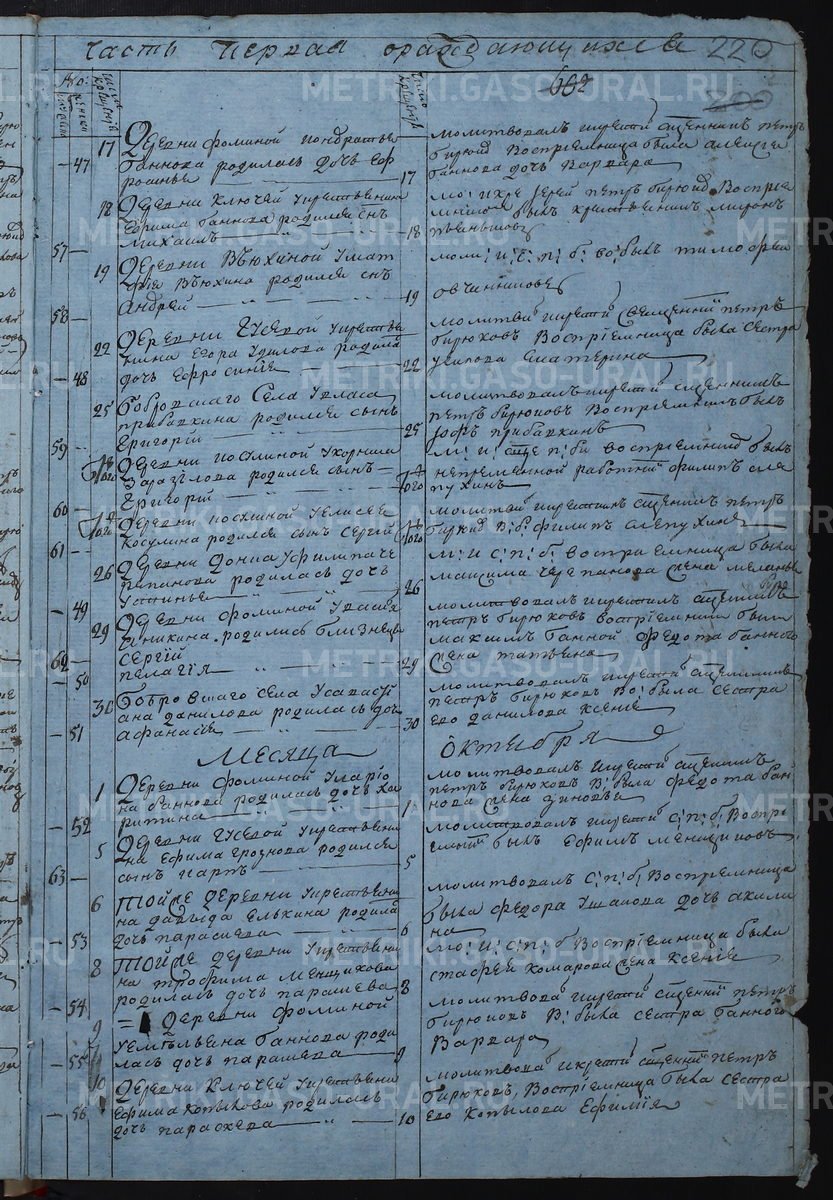 Часть первая ораждающихся 220
602
17 Деревни Фоминой Кондратья
47 Баннова родилась дочь Еф
росинья 17
молитвовалъ и крестилъ священникъ Петръ
Бирюков Восприемница была Алексея
Баннова дочь Варвара
18 Деревни Ключей у крестьянина
Ефима Баннова родился снъ
57 Михаилъ 18
мо: и кре иерей Петръ Бирюков Восприе
мникъ былъ крестьянинъ Миронъ
19 Деревни Вьюхиной у Мат
фея Вьюхина родился снъ
58 Андрей 19
моли: и: с: п: б: во: былъ Тимофей
Овчинников
22 Деревни Гусевой у крестья
нина Егора Ушакова родилась
48 дочь Ефросиния 22
молитвов и крести священни Петръ
Бирюковъ Восприемница была сестра
Ушакова Екатерина
25 Бобровшаго Села у Власа
Прибавкина родился сынъ
59 Григорий 25
молитвовалъ и крестил священникъ
Петръ Бирюковъ Восприемникъ былъ
Иовъ Прибавкинъ
Деревни Косминой у Корнила
родился сынъ
60 Григорий
м: и: сще п: би восприемник былъ
непременной работник Филипъ Сле
пухинъ
Деревни Космовой у Елисея
Косулина родился сынъ Сергий
61
Бирюков В: б: Филипъ Слепухин
26 Деревни Донца у Филипа Че
репанова родилась дочь
49 Устинья 26
м: и с: п: б: восприемница была
Максима Черепанова жена Меланья
29 Деревни Фоминой у Васил
Аникина родились близнецы
62 Сергий
50 Пелагия 29
молитвовалъ и крестилъ священникъ
Петръ Бирюковъ восприемники были
Максимъ Банной Федота Банного
жена Татьяна
30 Бобровшаго села у Савастi
яна Данилова родилась дочь
51 Афанасия 30
молитвовалъ и крестил священникъ
Петръ Бирюковъ Во: была сестра
ево Данилова Ксения
Месяца Октября
1 Деревни Фоминой у Ларио
на Баннова родилась дочь Ха
52 ритина 1
молитвовалъ и крестил священникъ
Петръ Бирюковъ В: была Федота Бан
нова жена Зиновья
5 Деревни Гусевой у крестьяни
на Ефима Грознова родился
63 сынъ Карпъ 5
молитвовалъ и крестил с: п: б: Воспри
емник былъ Ефимъ Меншиковъ
6 Той же деревни у крестьяни
на Давыда Елькина родила
53 дочь Параскева 6
молитвовалъ с: п: б: Восприемница
была Федора Ушакова дочь Акили
на
8 Той же деревни у крестьяни
на Трофима Меншикова
54 родилась дочь Парашева 8
мо: и: с: п: б: Восприемница была
Комарова жена Ксения
9 Деревни Фоминой
у Емельяна Баннова роди
55 лась дочь Парашева 9
молитвова и крести священни Петръ
Бирюковъ В: была сестра Банного
Варвара
10 Деревни Ключей у крестьяни
Ефима Копылова родилась
56 дочь Параскева 10
молитвова и крести священни Петръ
Бирюковъ, Восприемница была сестра
ево Копылова Ефимия
METRIKI.GASO-URAL.RU